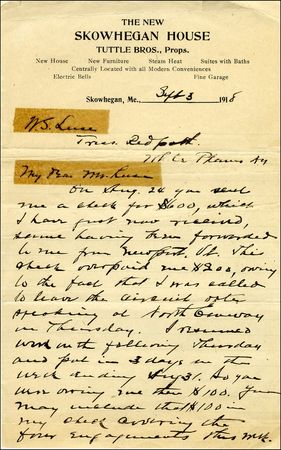 THE NEW
SKOWHEGAN HOUSE
TUTTLE BROS., Props.
New House New Furniture Steam Heat Suites with Baths
Centrally Located with all Modern Conveniences
Electric Bells Fine Garage
Skowhegan, Me., Sept 3 1918
W.S.
Treas. Redpath
White Plains NY
My Dear Mr.
On Aug. 24 you sent
me a check for $600, which
I have just now received,
same having been forwarded
to me from Newport, Vt. This
check overpaid me $200, owing
to the fact that I was called
to leave the circuit after
speaking at North Conway
on Thursday. I resumed
work the following Thursday
and put in 3 days in the
week ending Aug 31. So you
now owing me the $100. You
may include that $100 in
my check covering the
four engagements this wk.